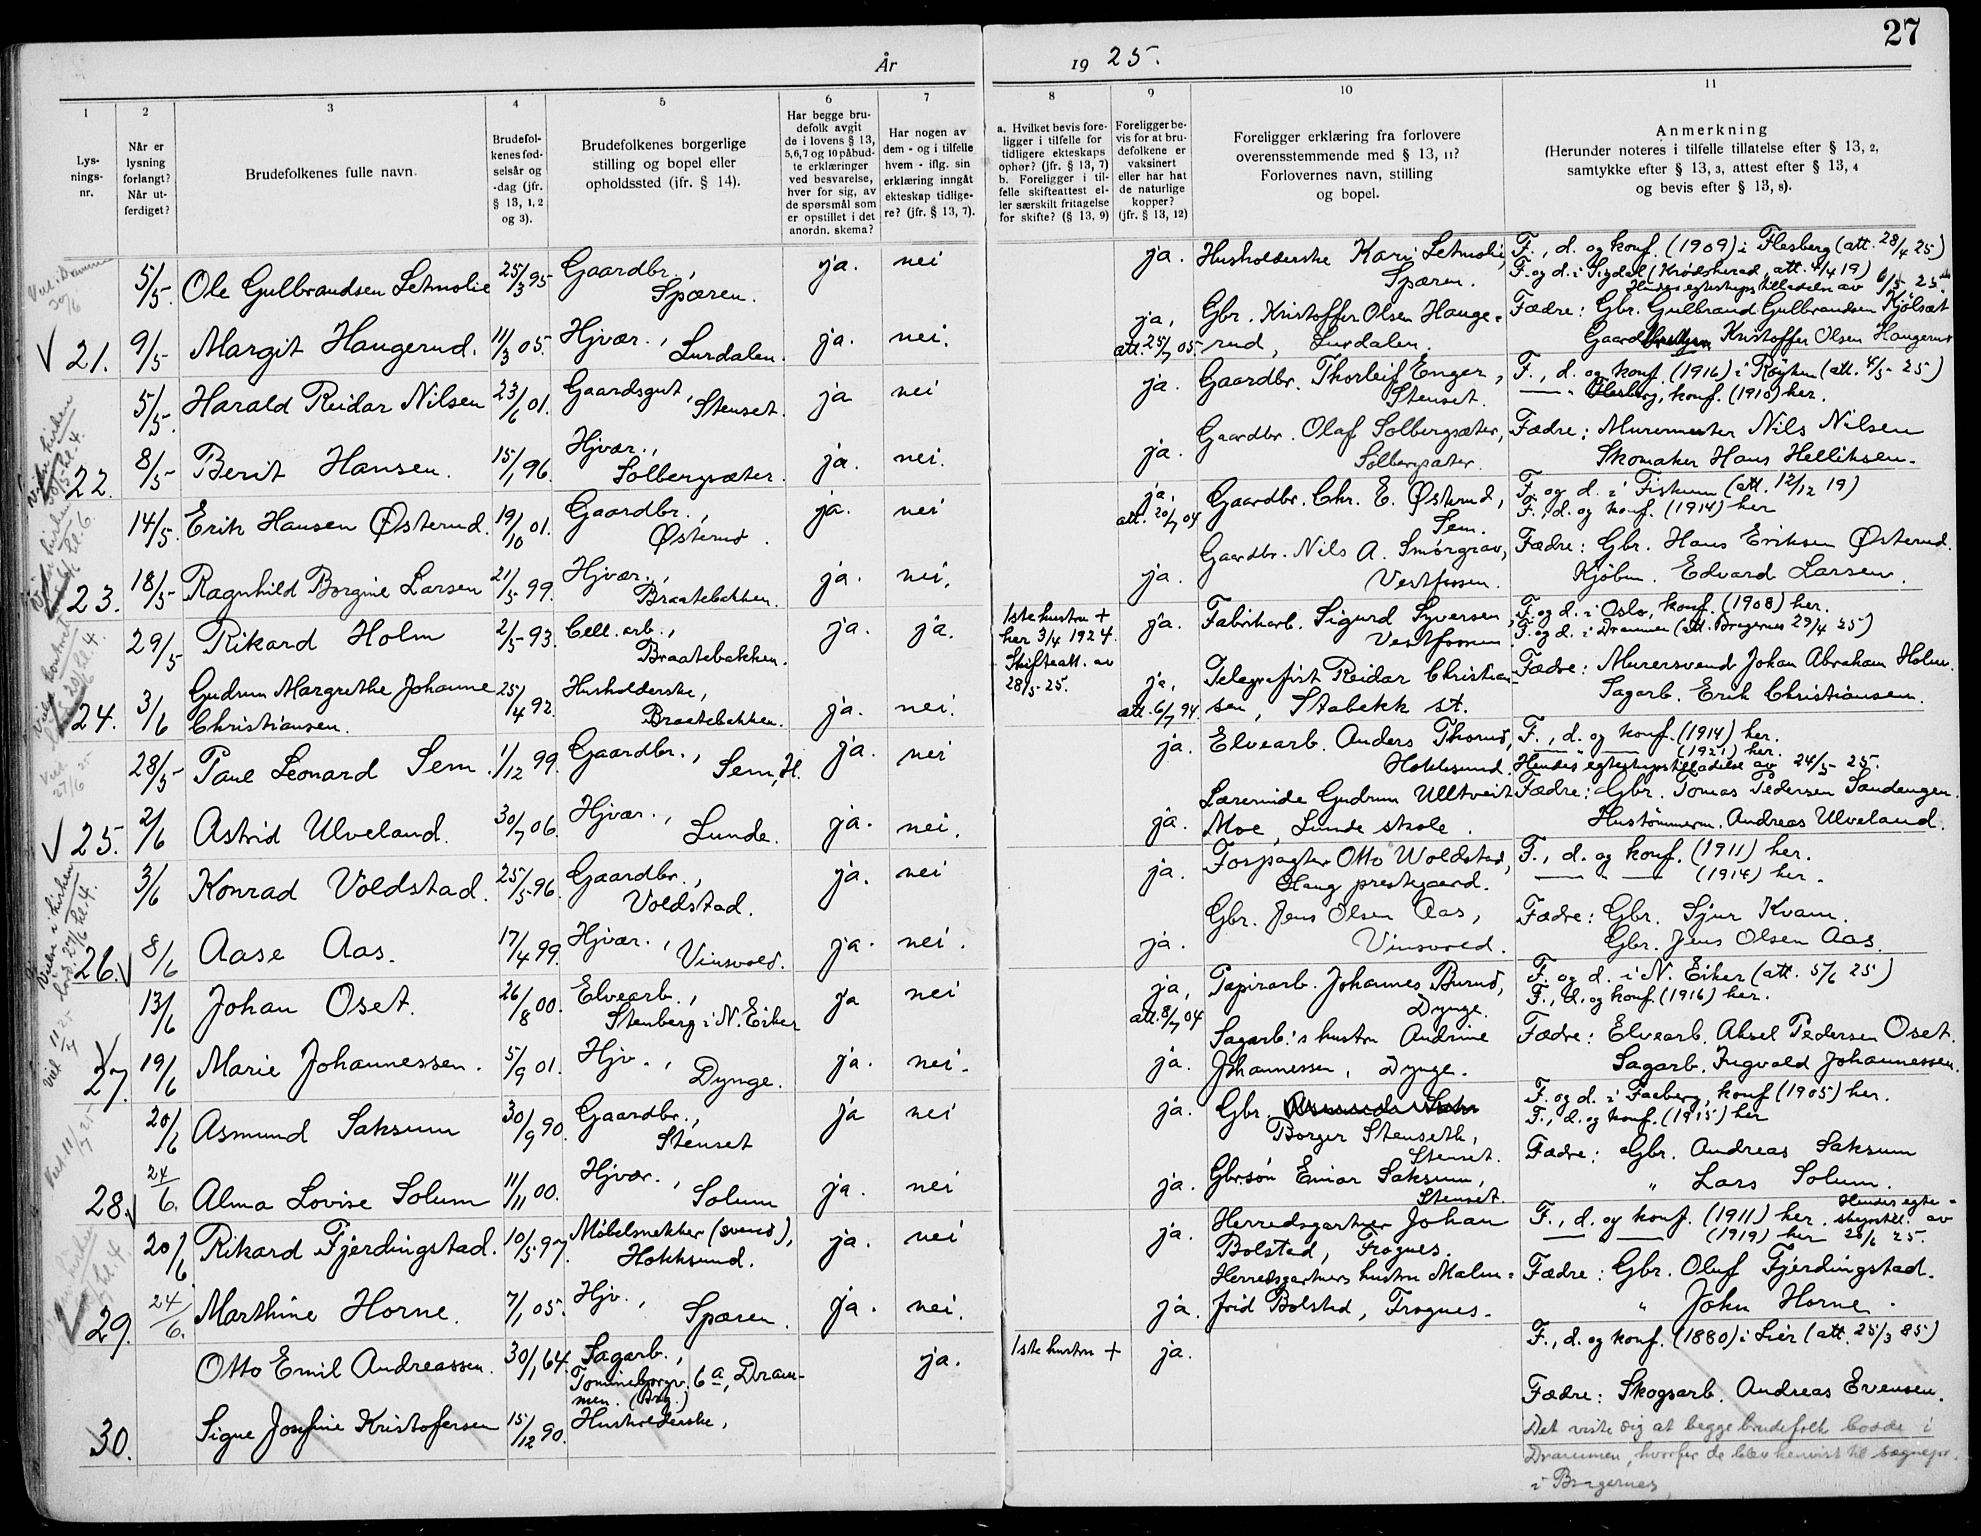 27
År 1925.
1 2 3 4 5 6 7 8 9 10 11
Lysnings-
nr.
Når er
lysning
forlangt?
Når ut-
ferdiget?
Brudefolkenes fulle navn.
Brudefol-
kenes fød-
selsår og
-dag (jfr.
§ 13, 1, 2
og 3).
Brudefolkenes borgerlige
stilling og bopel eller
opholdssted (jfr. § 14).
Har begge bru-
defolk avgit
de i lovens § 13,
5, 6, 7 og 10 påbud-
te erklæringer
ved besvarelse,
hver for sig, av
de spørsmål som
er opstillet i det
anordn. skema?
Har nogen av
dem - og i tilfelle
hvem - iflg. sin
erklæring inngåt
ekteskap tidlige-
re? (jfr. § 13, 7).
a. Hvilket bevis fore-
ligger i tilfelle for
tidligere ekteskaps
ophør? (jfr. § 13, 7)
b. Foreligger i til-
felle skifteattest el-
ler særskilt fritagelse
for skifte? (§ 13, 9)
Foreligger be-
vis for at bru-
defolkene er
vaksinert
eller har hat
de naturlige
kopper?
(jfr. § 13, 12)
Foreligger erklæring fra forlovere
overensstemmende med § 13, 11?
Forlovernes navn, stilling
og bopel.
Anmerkning
(Herunder noteres i tilfelle tillatelse efter § 13, 2,
samtykke efter § 13, 3, attest efter § 13, 4
og bevis efter § 13, 8).
5/5. Ole Gulbrandsen Letmolie 25/3 95 Gaardbr., Spæren. ja. nei ja. Husholderske Kari Letmolie, Spæren. F., d. og konf. (1909) i Flesberg (att. 28/4 25)
F. og d. i Sigdal (Krødsherad, att. 4/4 19)
Hendes egteskapstilladelse av 6/5 25.
21. 9/5 Margit Haugerud. 11/3 05. Hjvær., Lurdalen. ja. nei. ja, att. 25/7 05. Gbr. Kristoffer Olsen Hauge-
rud, Lurdalen. Fædre: Gbr. Gulbrand Gulbrandsen Kjölsæt
Kristoffer Olsen Haugerud
5/5. Harald Reidar Nilsen 23/6 01. Gaardsgut, Stenset. ja nei ja. Gaardbr. Thorleif Enger, Stenset. F., d. og konf. (1916) i Røyken (att. 4/5 - 25)
Flesberg, konf. (1910) her.
22. 8/5 Berit Hansen. 15/1 96. Hjvær., Solbergsæter. ja. nei. ja. Gaardbr. Olaf Solbergsæter, Solbergsæter. Fædre: Murermester Nils Nilsen
Skomaker Hans Helliksen.
14/5. Erik Hansen Østerud. 19/10 01. Gaardbr., Østerud. ja. nei ja, att. 20/7 04 Gaardbr. Chr. E. Østerud, Sem. F. og d. i Fiskum (att. 12/12 19)
F., d. og konf. (1914) her
23. 18/5 Ragnhild Borgine Larsen 21/5 99. Hjvær., Braatebakken. ja. nei. ja. Gaardbr. Nils A. Smørgrav, Vestfossen. Fædre: Gbr. Hans Eriksen Østerud.
Kjøbm. Edvard Larsen.
29/5 Rikard Holm 2/5 93. Cell. arb., Braatebakken. ja. ja. 1ste hustru +
her 3/4 1924.
Skifteatt. av
28/5 - 25. ja. Fabrikarb. Sigurd Syversen, Vestfossen F. og d. i Oslo, konf. (1908) her.
F. og d. i Drammen (att. Bragernes 29/4 25)
24. 3/6 Gudrun Margrethe Johanne
Christiansen. 25/4 92. Husholderske, Braatebakken. ja. nei. ja, att. 6/7 94 Telegrafist Reidar Christian-
sen, Stabekk st. Fædre: Murersvend Johan Abraham Holm.
Sagarb. Erik Christiansen.
28/5 Paul Leonard Sem. 1/12 99. Gaardbr., Sem, H. ja. nei ja. Elvearb. Anders Thorud, Hokksund. F., d. og konf. (1914) her.
(1921) her.
Hendes egteskapstilladelse av 24/5 - 25.
25. 2/6 Astrid Ulveland. 30/7 06. Hjvær., Lunde. ja. nei. ja. Lærerinde Gudrun Ulltveit
Moe, Lunde skole. Fædre: Gbr. Tomas Pedersen Sandengen.
Hustømmerm. Andreas Ulveland.
3/6 Konrad Voldstad. 25/5 96. Gaardbr., Voldstad. ja. nei ja. Forpagter Otto Woldstad,
Haug prestegaard. F., d. og konf. (1911) her.
(1914) her.
26. 8/6 Aase Aas. 17/4 99. Hjvær., Vinsvold. ja. nei. ja. Gbr. Jens Olsen Aas, Vinsvold. Fædre: Gbr. Sjur Kvam.
Gbr. Jens Olsen Aas.
13/6 Johan Oset. 26/8 00. Elvearb., Stenberg i N. Eiker ja nei ja, att. 8/7 04 Papirarb. Johannes Burud, Dynge. F. og d. i N. Eiker (att. 5/6 25)
F., d. og konf. (1916) her.
27. 19/6 Marie Johannessen. 5/9 01. Hjv., Dynge. ja. nei. ja. Sagarb.'s hustru Andrine
Johannessen, Dynge. Fædre: Elvearb. Aksel Pedersen Oset.
Sagarb. Ingvald Johannessen.
20/6 Asmund Saksum 30/9 90. Gaardbr., Stenset ja nei ja. Gbr. Borger Stenseth, Stenset. F. og d. i Faaberg, konf (1905) her.
F., d. og konf. (1915) her
28. 24/6. Alma Lovise Solum 11/11 00. Hjvær., Solum ja. nei ja. Gbrsøn Einar Saksum, Stenset Fædre: Gbr. Andreas Saksum
" Lars Solum.
20/6 Rikard Fjerdingstad. 10/5 97. Møbelsnekker (svend), Hokksund. ja. nei ja. Herredsgartner Johan
Bolstad, Frognes. F., d. og konf. (1911) her.
(1919) her
29. 24/6. Marthine Horne. 7/1 05. Hjv., Spæren. ja. nei. ja. Herredsgartners hustru Malm-
frid Bolstad, Frognes. Fædre: Gbr. Oluf Fjerdingstad.
" John Horne.
Otto Emil Andreassen. 30/1 64. Sagarb., 6a, Dram-
men. (Brg.) ja. 1ste hustru + ja. F., d. og konf. (1880) i Lier (att. 25/3 85)
Fædre: Skogsarb. Andreas Evensen.
30. Signe Josefine Kristofersen 15/12 90. Husholderske,
Det viste sig at begge brudefolk bodde i
Drammen, hvorfor de blev henvist til sognepr.
i Bragernes.